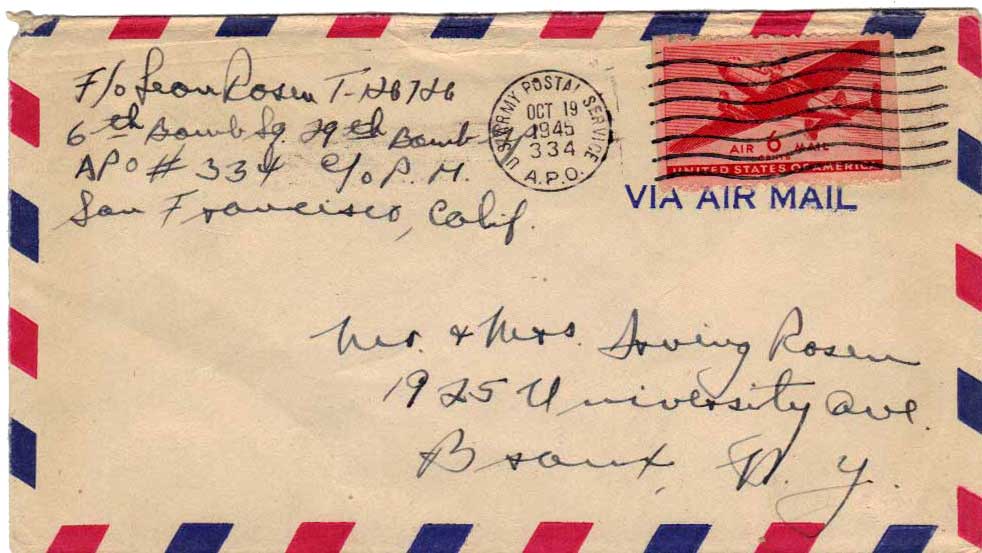 F/o Leon Rosen T-126726
6th Bomb Sq. 29th Bomb
APO # 334 c/o P. M.
San Francisco, Calif.
U.S. ARMY POSTAL SERVICE
OCT 19
1945
334
A.P.O.
AIR 6 MAIL
CENTS
UNITED STATES OF AMERICA
VIA AIR MAIL
Mr. & Mrs. Irving Rosen
1925 University Ave.
Bronx, N. Y.